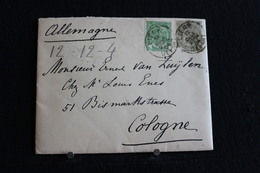 Allemagne
12-12-4
Monsieur Ernest van Zuylen
Chez Mr Louis Enes
51 Bismarkstrasse
Cologne